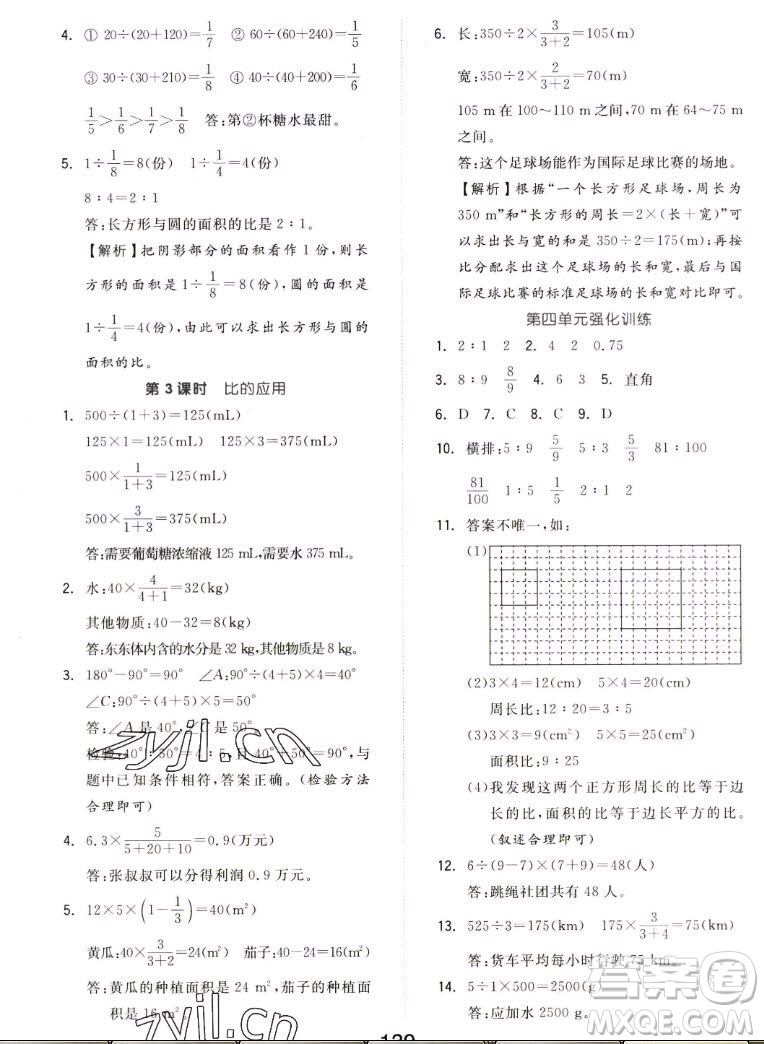 4. ① 20÷(20+120)=1/7 ② 60÷(60+240)=1/5
③ 30÷(30+210)=1/8 ④ 40÷(40+200)=1/6
1/5>1/6>1/7>1/8 答:第②杯糖水最甜。
5. 1÷1/8=8(份) 1÷1/4=4(份)
8∶4=2∶1
答:长方形与圆的面积的比是 2∶1。
【解析】把阴影部分的面积看作 1 份,则长
方形的面积是 1÷1/8=8(份),圆的面积是
1÷1/4=4(份),由此可以求出长方形与圆的
面积的比。
第 3 课时 比的应用
1. 500÷(1+3)=125(mL)
125×1=125(mL) 125×3=375(mL)
500×1/(1+3)=125(mL)
500×3/(1+3)=375(mL)
答:需要葡萄糖浓缩液 125 mL,需要水 375 mL。
2. 水:40×4/(4+1)=32(kg)
其他物质:40-32=8(kg)
答:东东体内含的水分是 32 kg,其他物质是 8 kg。
3. 180°-90°=90° ∠A:90°÷(4+5)×4=40°
∠C:90°÷(4+5)×5=50°
答:∠A 是 40°,∠C 是 50°。
检验:40°∶50°=4∶5,且 40°+50°=90°,与
题中已知条件相符,答案正确。(检验方法
合理即可)
4. 6.3×5/(5+20+10)=0.9(万元)
答:张叔叔可以分得利润 0.9 万元。
5. 12×5×(1-1/3)=40(m²)
黄瓜:40×3/(3+2)=24(m²) 茄子:40-24=16(m²)
答:黄瓜的种植面积是 24 m²,茄子的种植面
积是 16 m²。
6. 长:350÷2×3/(3+2)=105(m)
宽:350÷2×2/(3+2)=70(m)
105 m 在 100~110 m 之间,70 m 在 64~75 m
之间。
答:这个足球场能作为国际足球比赛的场地。
【解析】根据“一个长方形足球场,周长为
350 m”和“长方形的周长=2×(长+宽)”可
以求出长与宽的和是 350÷2=175(m);再按
比分配求出这个足球场的长和宽,最后与国
际足球比赛的标准足球场的长和宽对比即可。
第四单元强化训练
1. 2∶1 2. 2 4 0.75
3. 8∶9 8/9 4. 5∶4 5. 直角
6. D 7. C 8. C 9. D
10. 横排:5∶9 5/9 5∶3 5/3 81∶100
81/100 1∶5 1/5 2∶1 2
11. 答案不唯一,如:
(1)
(2)3×4=12(cm) 5×4=20(cm)
周长比:12∶20=3∶5
(3)3×3=9(cm²) 5×5=25(cm²)
面积比:9∶25
(4)我发现这两个正方形周长的比等于边
长的比,面积的比等于边长平方的比。
(叙述合理即可)
12. 6÷(9-7)×(7+9)=48(人)
答:跳绳社团共有 48 人。
13. 525÷3=175(km) 175×3/(3+4)=75(km)
答:货车平均每小时行驶 75 km。
14. 5÷1×500=2500(g)
答:应加水 2500 g。
zyjl.cn
zyjl.cn
答案圈